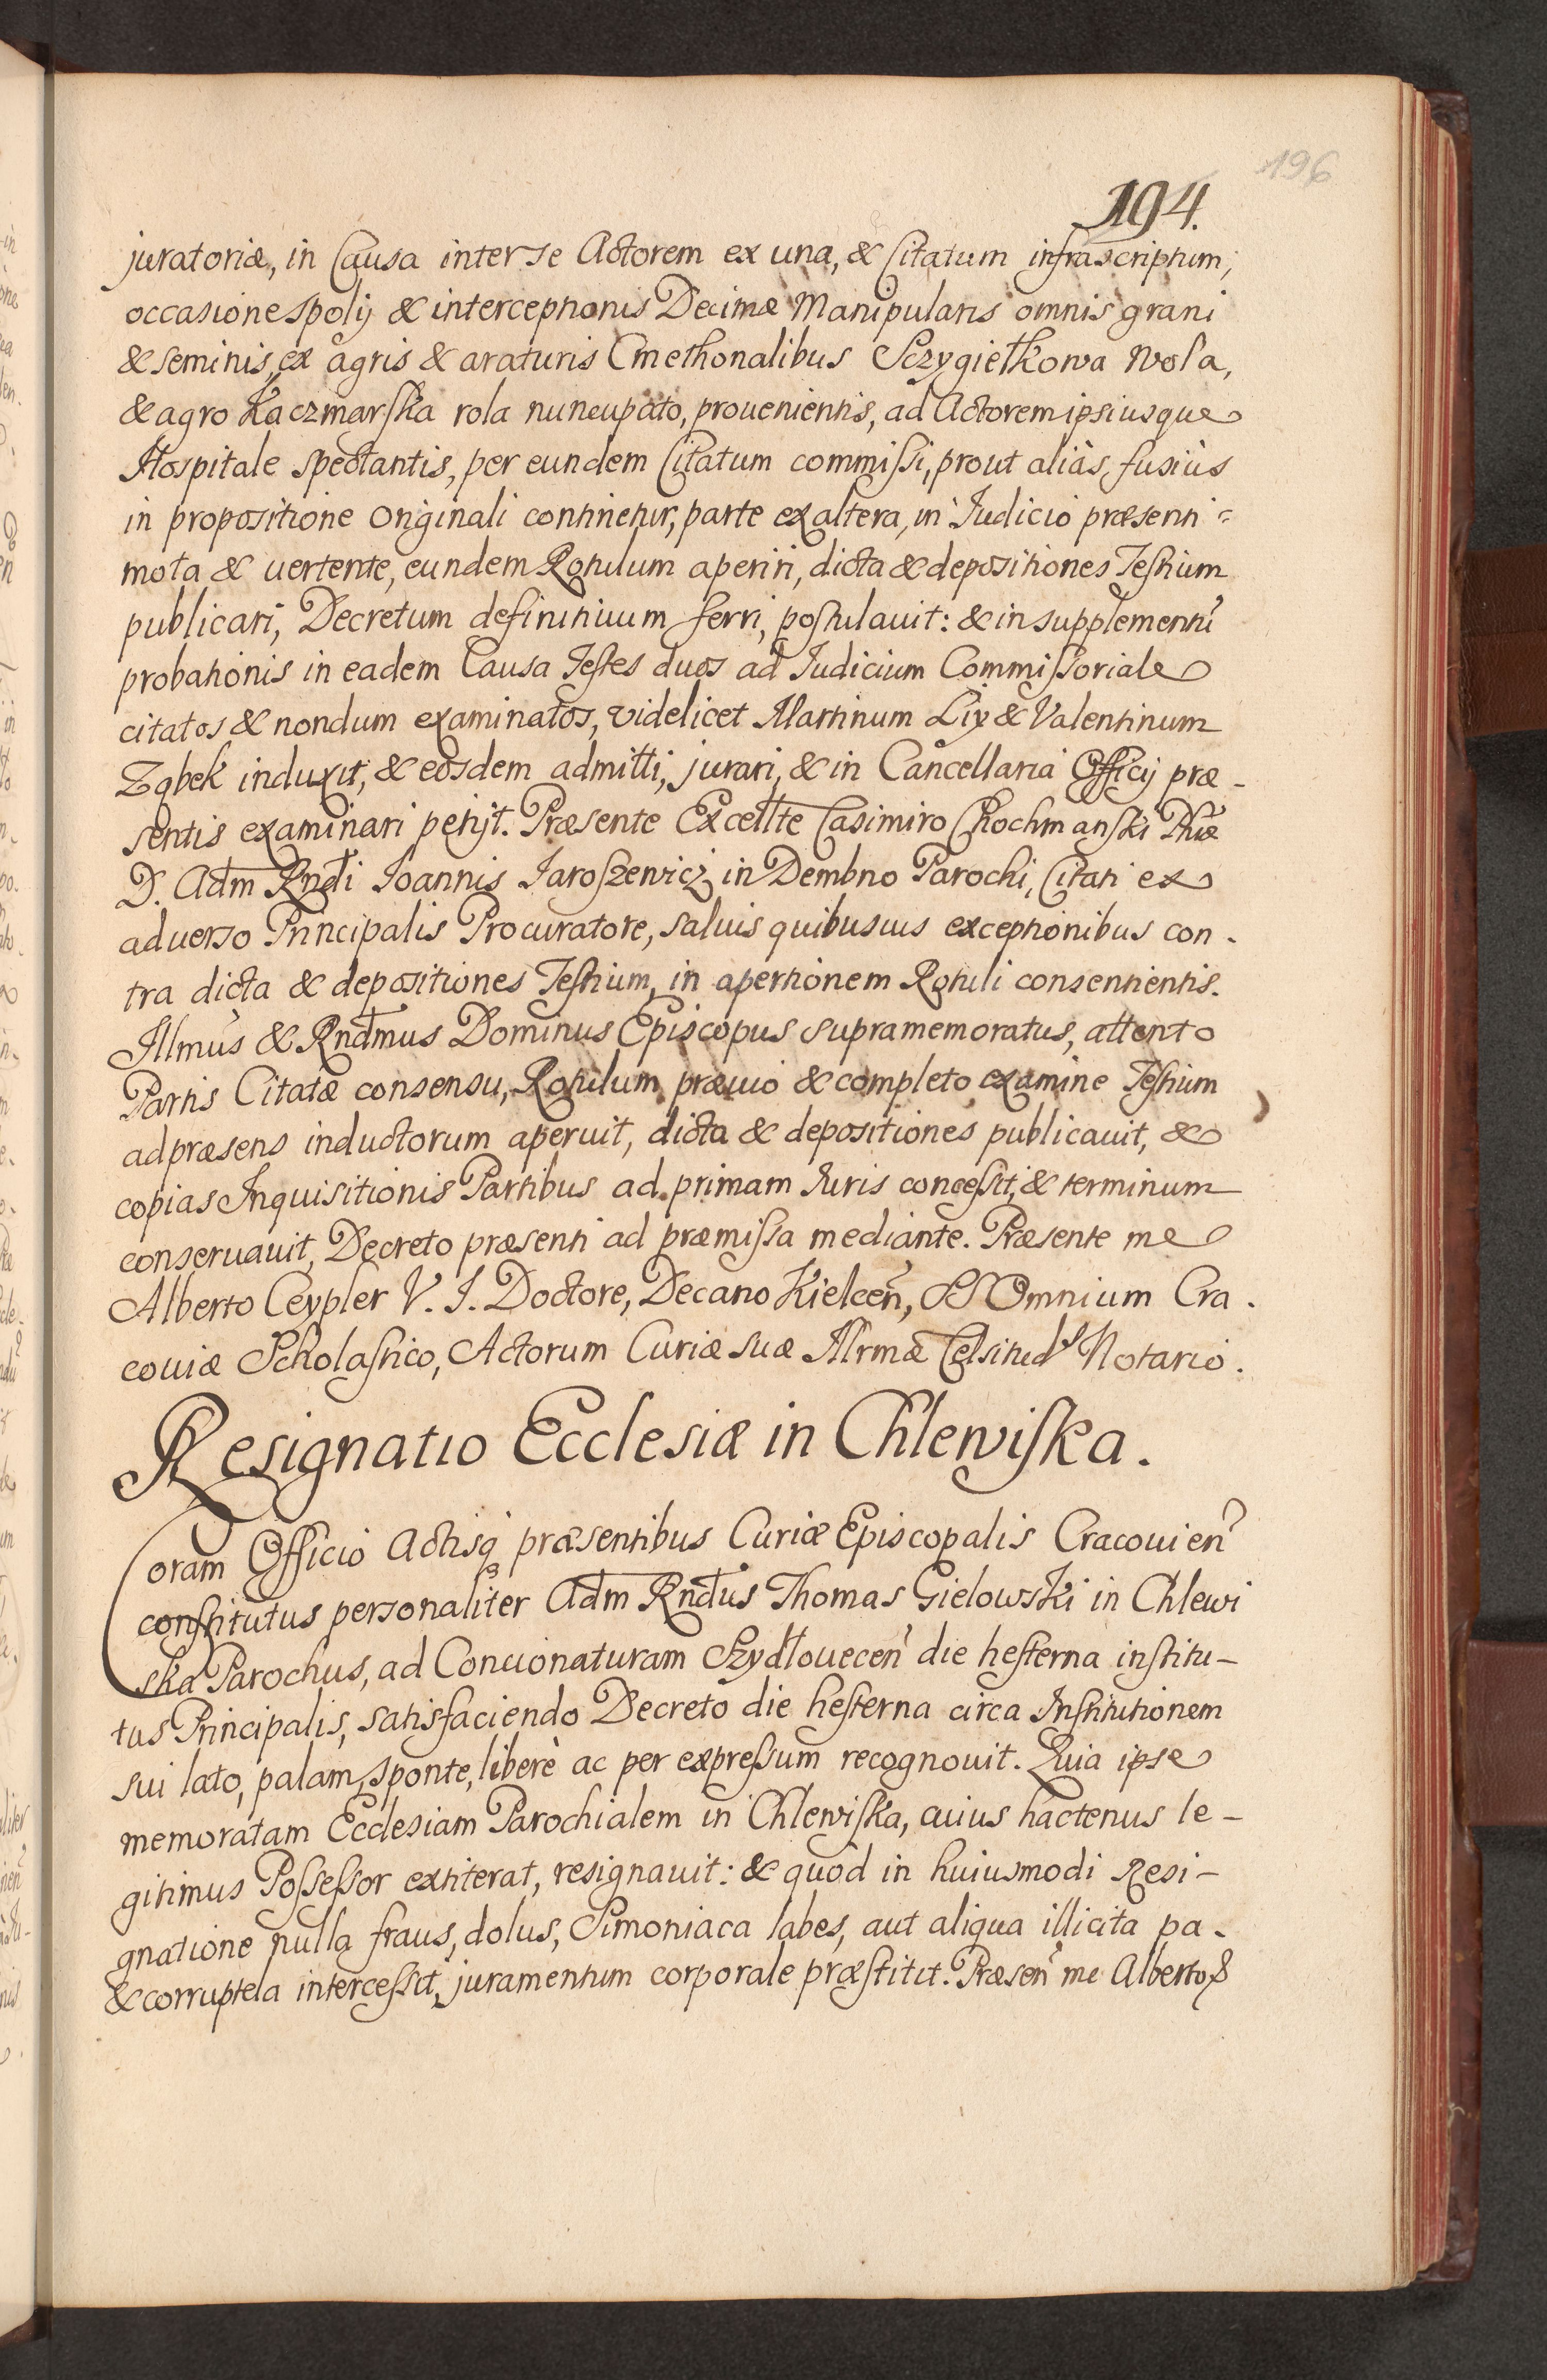 196
194.
juratoriæ, in Causa inter se Actorem ex una, & Citatum infrascriptum,
occasione spolij & interceptionis Decimæ Manipularis omnis grani
& seminis, ex agris & araturis Cmethonalibus Sczygiełkowa Wola,
& agro Kaczmarska rola nuncupato, prouenientis, ad Actorem ipsiusque
Hospitale spectantis, per eundem Citatum commissi, prout aliàs, fusiùs
in propositione originali continetur, parte ex altera, in Iudicio præsenti
mota & uertente, eundem Rotulum aperiri, dicta & depositiones Testium
publicari, Decretum definitiuum ferri, postulauit: & in supplementũ
probationis in eadem Causa Testes duos ad Iudicium Commissoriale
citatos & nondum examinatos, videlicet Martinum Lix & Valentinum
Ząbek induxit, & eosdem admitti, jurari, & in Cancellaria Officij præ-
sentis examinari petijt. Præsente Excellte Casimiro Chochmanski Phiæ
D. Adm Rndi Ioannis Iaroszewicz in Dembno Parochi, Citati ex
aduerso Principalis Procuratore, saluis quibusuis exceptionibus con-
tra dicta & depositiones Testium, in apertionem Rotuli consentientis.
Illmus & Rndmus Dominus Episcopus supramemoratus, attento
Partis Citatæ consensu, Rotulum præuio & completo examine Testium
ad præsens inductorum aperuit, dicta & depositiones publicauit, &
copias Inquisitionis Partibus ad primam Iuris concessit, & terminum
conseruauit, Decreto præsenti ad præmissa mediante. Præsente me
Alberto Ceypler V. I. Doctore, Decano Kielceñ, SS Omnium Cra-
couiæ Scholastico, Actorum Curiæ suæ Illrmæ Celsitudˢ Notario.
Resignatio Ecclesiæ in Chlewiska.
Coram Officio Actisq præsentibus Curiæ Episcopalis Cracouieñ
constitutus personaliter Adm Rndus Thomas Gielowski in Chlewi
ska Parochus, ad Concionaturam Szydłoueceñ die hesterna institu-
tus Principalis, satisfaciendo Decreto die hesterna circa Institutionem
sui lato, palam, sponte, liberè ac per expressum recognouit. Quia ipse
memoratam Ecclesiam Parochialem in Chlewiska, cuius hactenus le-
gitimus Possessor extiterat, resignauit: & quòd in huiusmodi Resi-
gnatione nulla fraus, dolus, Simoniaca labes, aut aliqua illicita pa-
& corruptela intercessit, juramentum corporale præstitit. Præseñ me Alberto